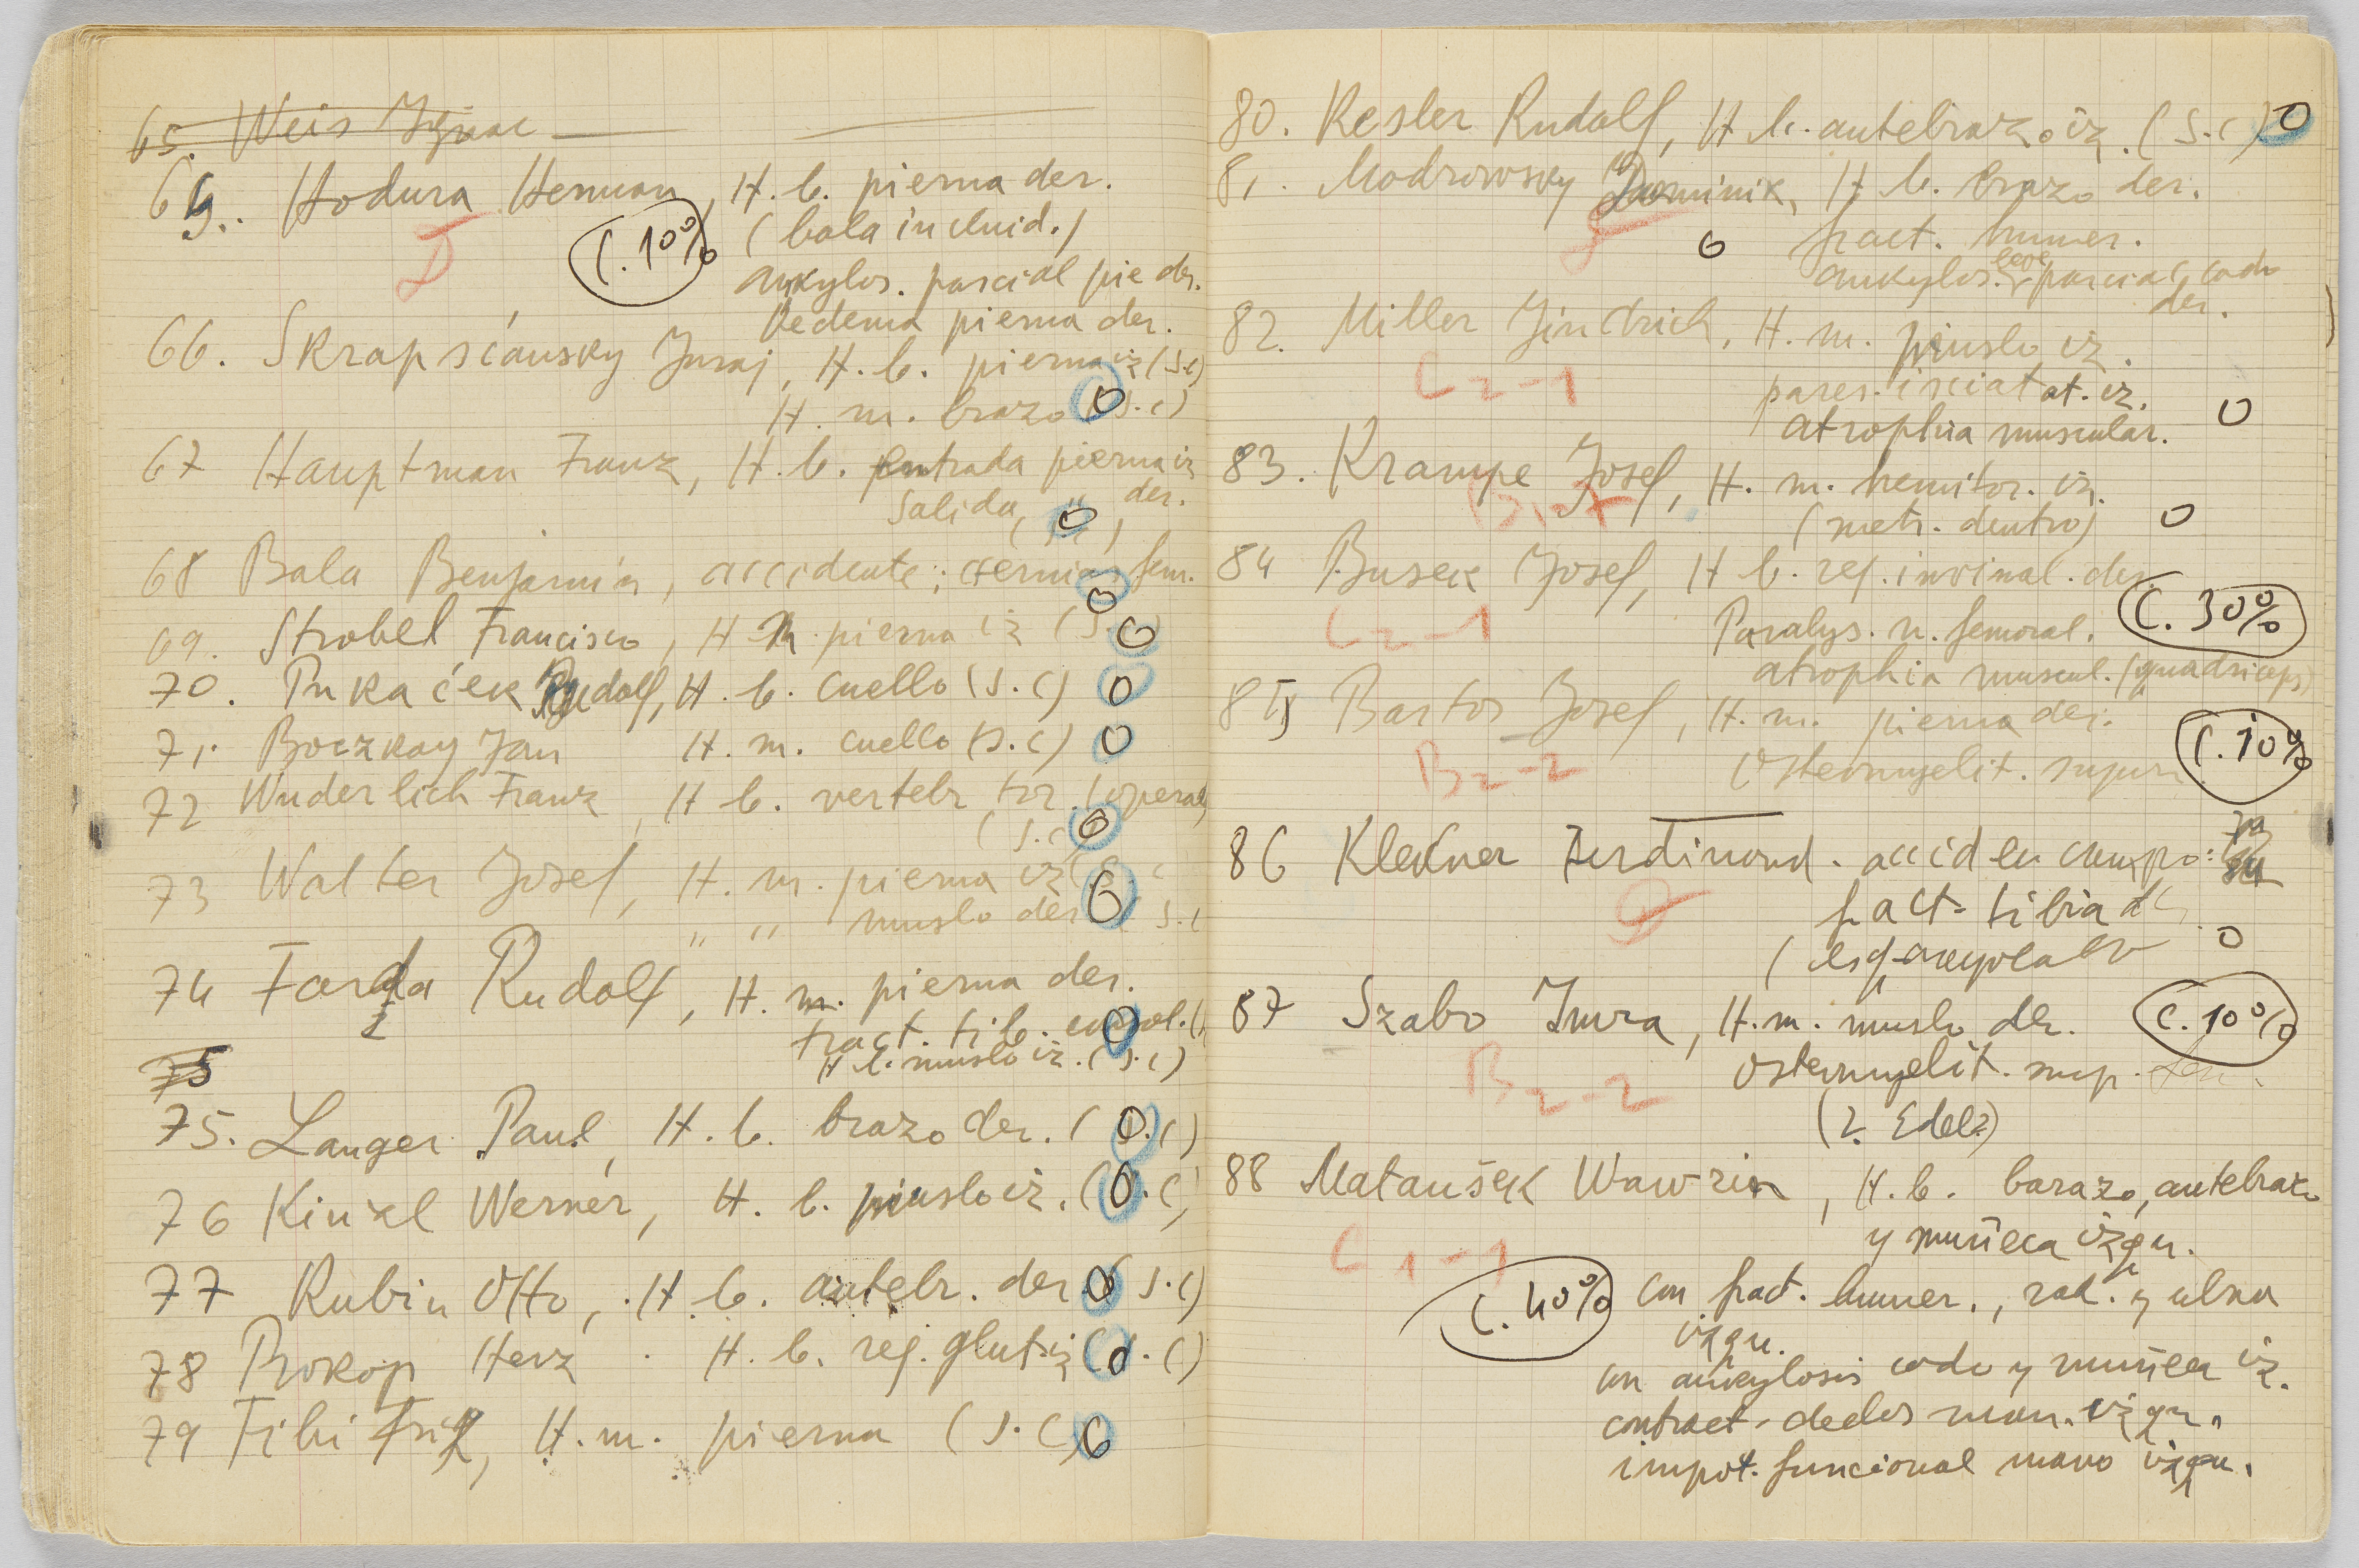 65. Weis Ignac
65. Hodura Herman, H. b. pierna der.
D (C. 10% (bala incluid.)
ankylos. parcial pie der.
Oedema pierna der.
66. Skrapsćansky Juraj, H. b. pierna iz (S.C)
H. m. brazo 0 (S.C)
67 Hauptman Franz, H. b. entrada pierna iz
Salida, " der.
0
68 Bala Benjamin, accidente; hernia fem.
0
69. Strobel Francisco, H m. pierna iz (S. 0
70. Pukaćek Rudolf, H. b. cuello (S.C) 0
71. Boczkay Jan H. m. cuello (S.C) 0
72 Wuderlich Franz, H b. vertebr tor. (operad
(S.C 0
73 Walter Josef, H. m. pierna iz (S.C
" " muslo der 0 S.C
74 Farda Rudolf, H. m. pierna der.
fract. tib. consol. 0
H b. muslo iz. (S.C)
75
75. Langer Paul, H. b. brazo der. (0.C)
76 Kinzl Werner, H. b. muslo iz. (0.C)
77 Rubin Otto, H b. antebr. der 0 S.C)
78 Prokop Herz H. b. reg. glut. iz (0.C)
79 Fibi Friz, H. m. pierna (S.C) 0
80. Kesler Rudolf, H b. antebrazo iz. (S.C) 0
81. Modrowsky Dominik, H b. brazo der.
0 fract. humer.
ankylos. leve parcial codo
der.
82. Miller Jindrich, H. m. muslo iz.
C2-1 pares. isciat at. iz.
atrophia muscular. 0
83. Krampe Josef, H. m. hemitor. iz.
(metr. dentro) 0
84 Busek Josef, H b. reg. invinal. der.
C2-1 Paralys. n. femoral. C. 30%
atrophia muscul. (quadriceps)
85 Bartos Josef, H. m. pierna der.
B2-2 Osteomyelit. supur C. 10%
86 Klekner Ferdinand. acciden campo:
D fract. tibia
0
87 Szabo Imra, H. m. muslo der. C. 10%
B2-2 Osteomyelit. sup.
(2. Edelz)
88 Mataušek Wawrin, H. b. barazo, antebrazo
y muñeca izqu.
C1-1
C. 40% con fract. humer., rad. y ulna
izqu.
con ankylosis codo y muñeca iz.
contract. dedos man. izqu.
impot. funcional mano izqu.